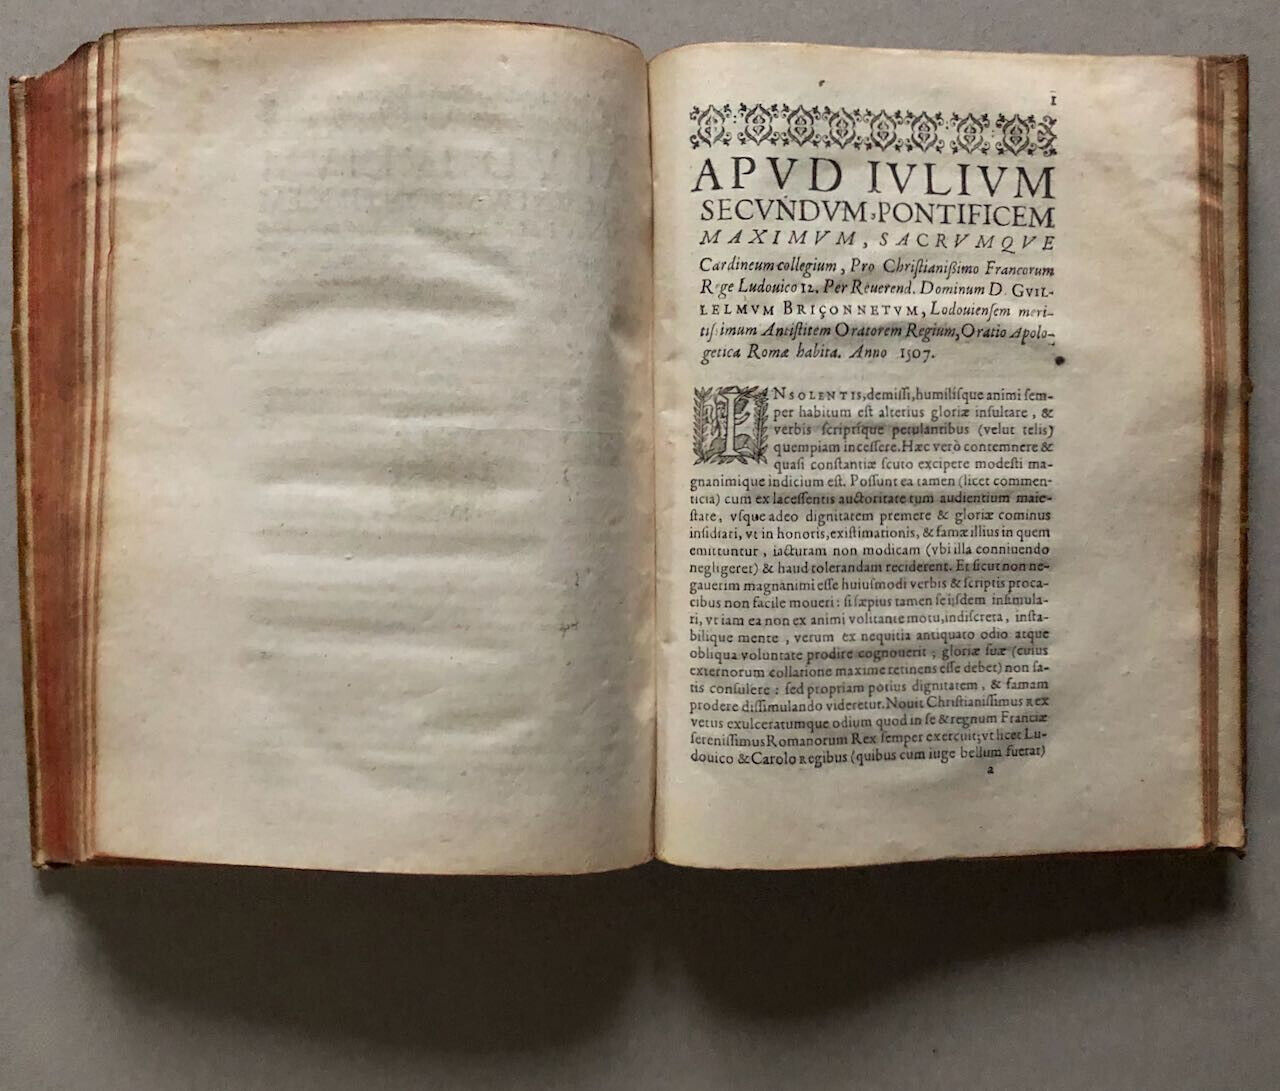 1
APVD IVLIVM
SECVNDVM, PONTIFICEM
MAXIMVM, SACRVMQVE
Cardineum collegium, Pro Christianißimo Francorum
Rege Ludouico 12. Per Reuerend. Dominum D. GVIL-
LELMVM BRIÇONNETVM, Lodouiensem meri-
tissimum Antistitem Oratorem Regium, Oratio Apolo-
getica Romæ habita. Anno 1507.
INSOLENTIS, demissi, humilisque animi sem-
per habitum est alterius gloriæ insultare, &
verbis scriptisque petulantibus (velut telis)
quempiam incessere. Hæc verò contemnere &
quasi constantiæ scuto excipere modesti ma-
gnanimique indicium est. Possunt ea tamen (licet commen-
ticia) cum ex lacessentis auctoritate tum audientium maie-
state, vsque adeo dignitatem premere & gloriæ cominus
insidiari, vt in honoris, existimationis, & famæ illius in quem
emittuntur, iacturam non modicam (vbi illa conniuendo
negligeret) & haud tolerandam reciderent. Et sicut non ne-
gauerim magnanimi esse huiusmodi verbis & scriptis proca-
cibus non facile moueri: si sæpius tamen se iisdem insimula-
ri, vt iam ea non ex animi volitante motu, indiscreta, insta-
bilique mente, verum ex nequitia antiquato odio atque
obliqua voluntate prodire cognouerit; gloriæ suæ (cuius
externorum collatione maxime retinens esse debet) non sa-
tis consulere: sed propriam potius dignitatem, & famam
prodere dissimulando videretur. Nouit Christianissimus Rex
vetus exulceratumque odium quod in se & regnum Franciæ
serenissimus Romanorum Rex semper exercuit; vt licet Lu-
douico & Carolo Regibus (quibus cum iuge bellum fuerat)
a